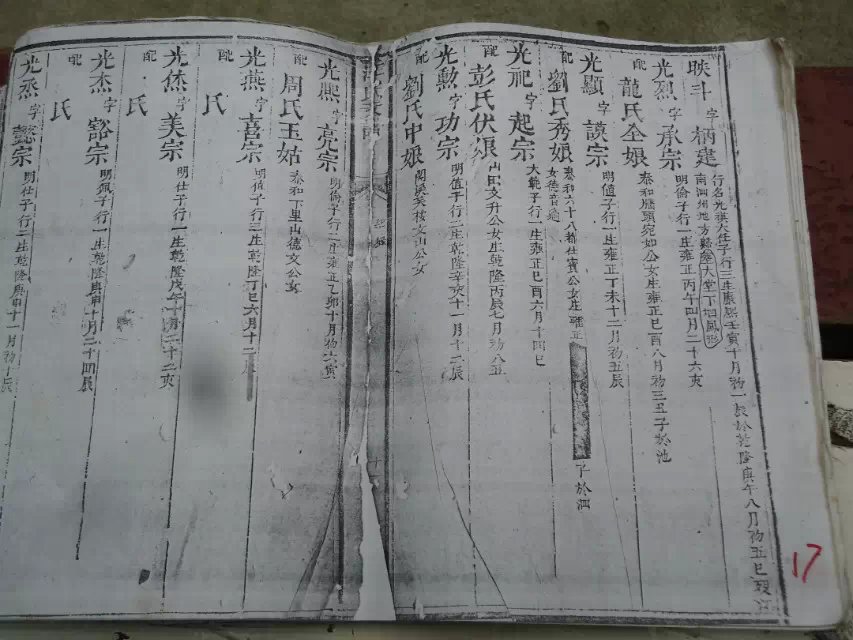 映斗字柄建行名光祺大任子行三生康熙壬寅十月初一辰於乾隆庚午八月初五巳
南泗州地方大堂下如鳳形
光烈字承宗明倫子行一生雍正丙午四月二十六亥
配龍氏全娘泰和殿頭宛如公女生雍正己酉八月初三丑子於池
光顯字謨宗明值子行一生雍正丁未十二月初五辰
配劉氏秀娘泰和六十八都仕賓公女生雍正
女德音適
子於泗
光祀字起宗大範子行一生雍正己酉六月十四巳
配彭氏伏娘山田文升公女生乾隆丙辰七月初八丑
光勲字功宗明值子行二生乾隆辛亥十一月初十二辰
配劉氏中娘閣溪芙樓文山公女
光熙字亮宗明倫子行二生雍正乙卯十月初六寅
配周氏玉姑泰和下里山德文公女
光燕字喜宗明值子行三生乾隆丁巳六月十二辰
配 氏
光烋字美宗明仕子行一生乾隆戊午十月二十二亥
配 氏
光杰字豁宗明佩子行一生乾隆庚申十月二十四辰
配 氏
光烝字懿宗明仕子行二生乾隆庚申十一月初十辰
17